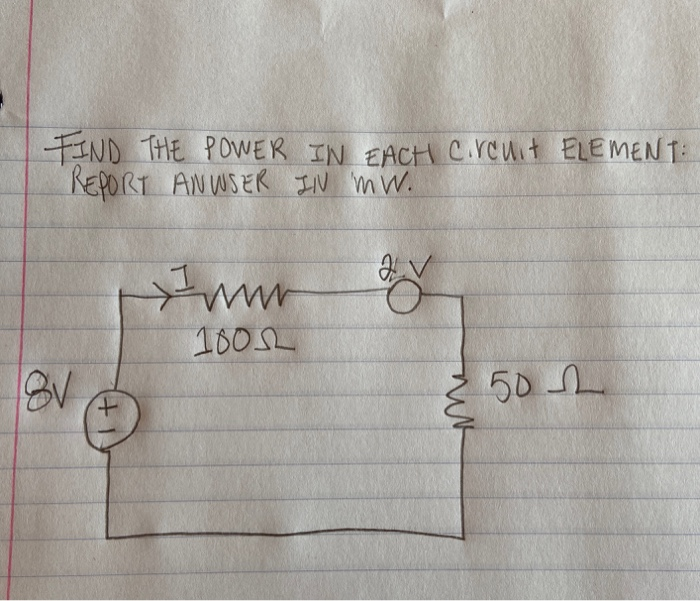 FIND THE POWER IN EACH CIRCUIT ELEMENT:
REPORT ANWSER IN mW.
I
2 V
100Ω
8V
+
-
50 Ω